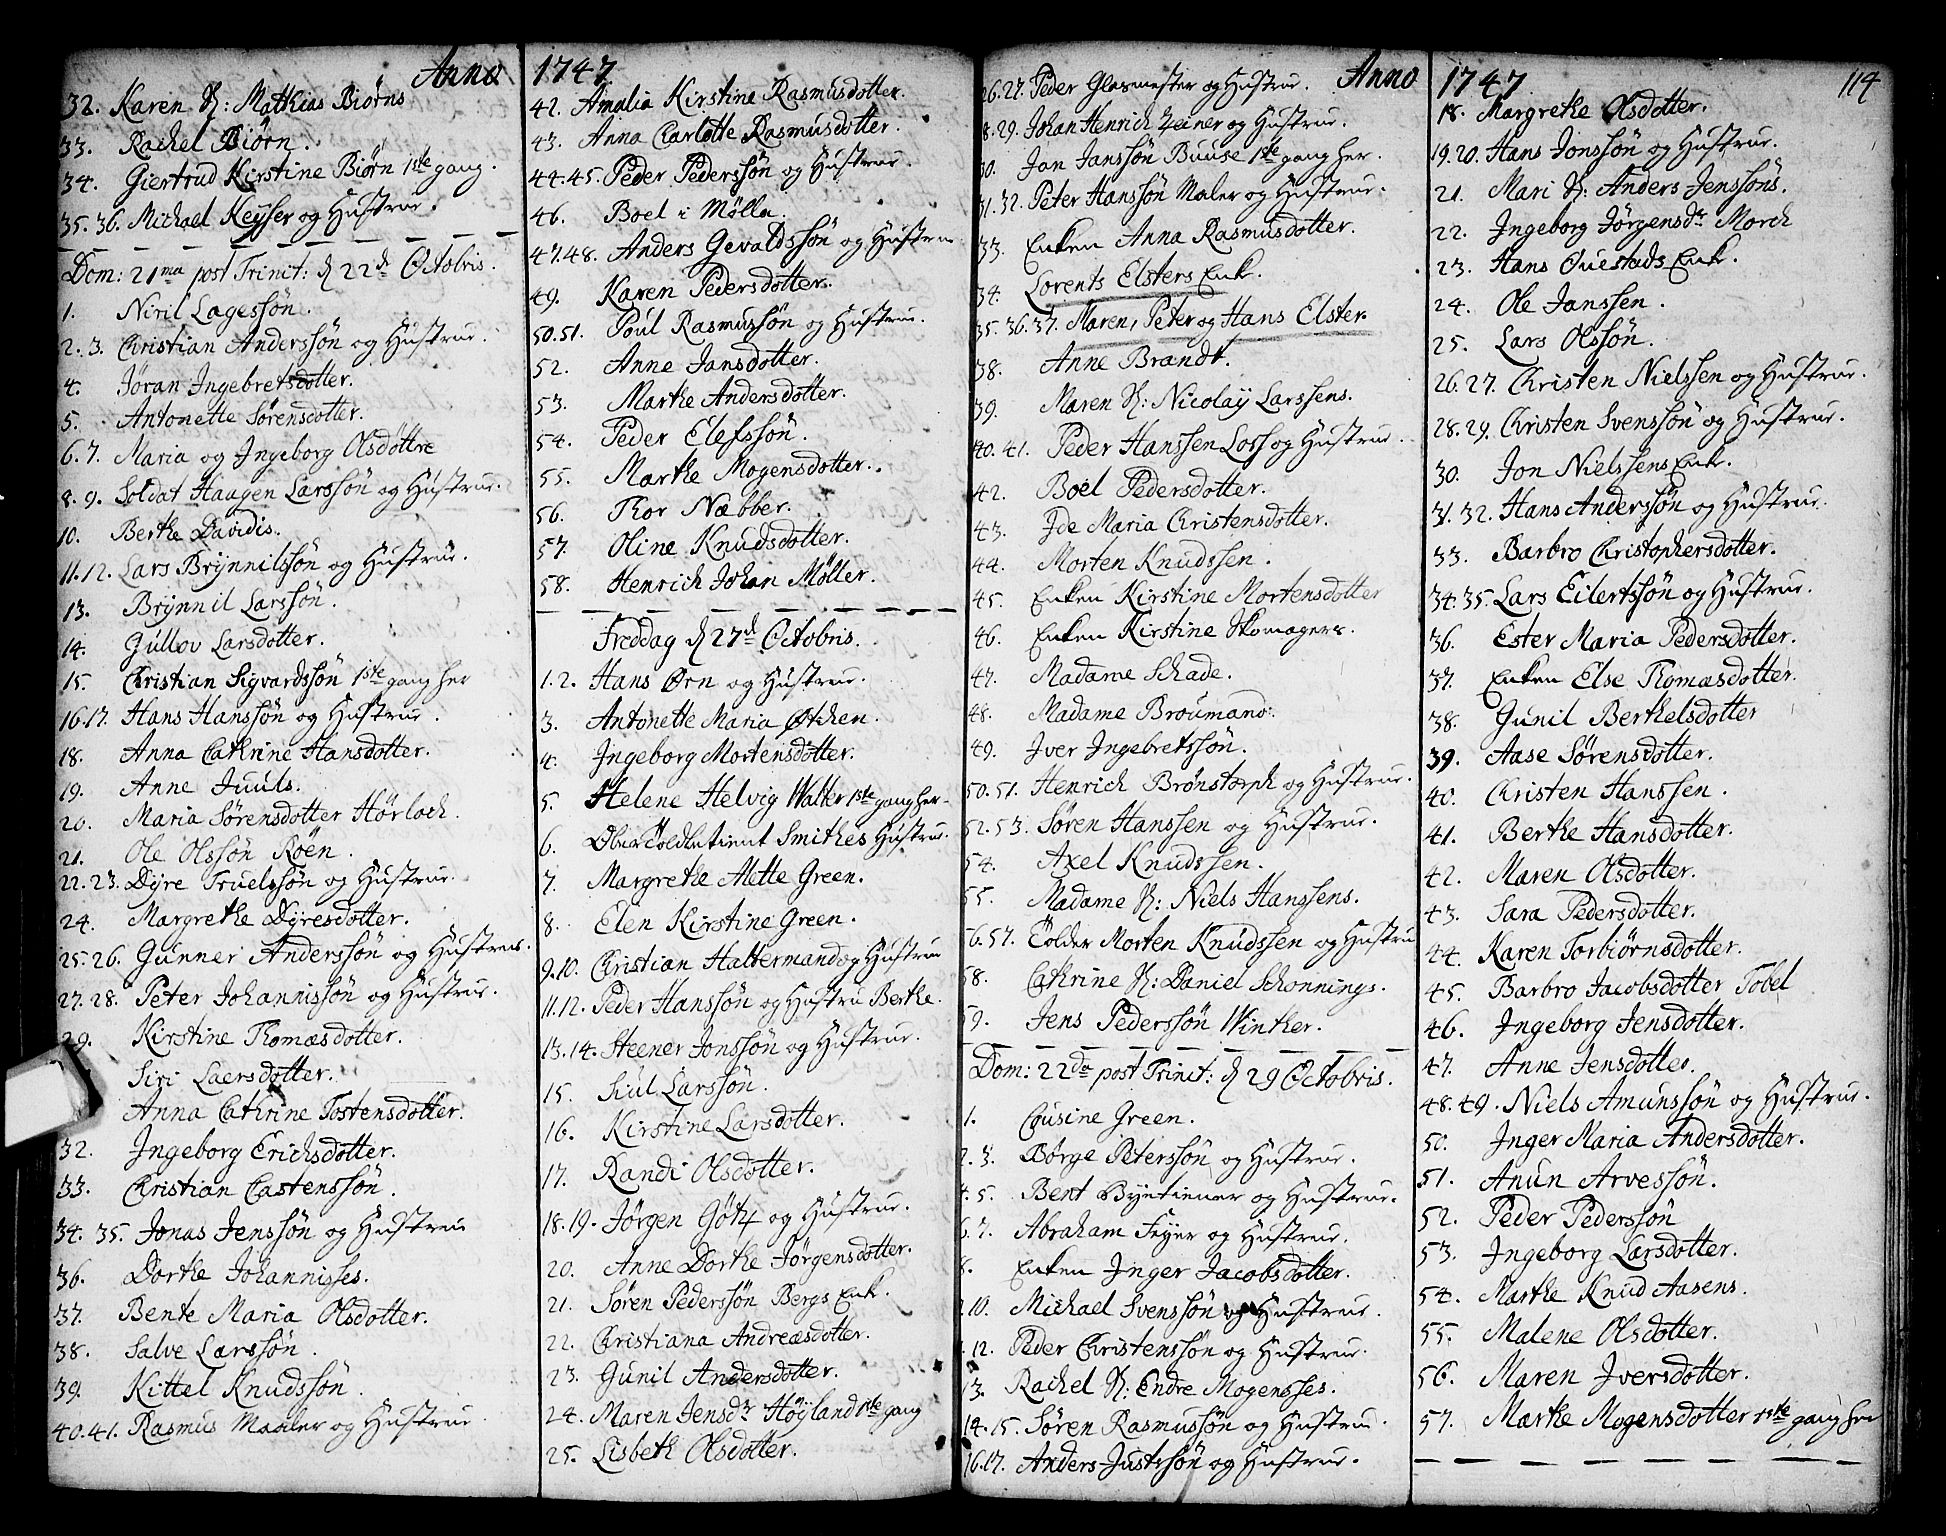 Anno 1747
32. Karen S: Mathias Biørns
33. Rachel Biørn.
34. Giertrud Kirstine Biørn 1ste gang.
35. 36. Michael Keyser og Hustrue.
Dom: 21ma post Trinit: d 22de Octobris.
1. Niril Lagessøn.
2. 3. Christian Anderssøn og Hustrue.
4. Jøran Ingebretsdotter.
5. Antonette Sørensdotter.
6. 7. Maria og Ingeborg Olsdøttre
8. 9. Soldat Haagen Larssøn og Hustrue.
10. Berthe Davidis.
11. 12. Lars Brynnilssøn og Hustrue.
13. Brynnil Larssøn.
14. Gullov Larsdotter.
15. Christian Sigvardssøn 1ste gang her
16. 17. Hans Hanssøn og Hustrue.
18. Anna Cathrine Hansdotter.
19. Anne Juuls.
20. Maria Sørensdotter Hørloch.
21. Ole Olssøn Røen.
22. 23. Dyre Truelssøn og Hustrue.
24. Margrethe Dyresdotter.
25. 26. Gunner Anderssøn og Hustrue.
27. 28. Peter Johannissøn og Hustrue.
29. Kirstine Thomasdotter.
Siri Laersdotter.
Anna Cathrine Tostensdotter.
32. Ingeborg Erichsdotter.
33. Christian Castenssøn.
34. 35. Jonas Jenssøn og Hustrue
36. Dorthe Johannisses.
37. Bente Maria Olsdotter.
38. Salve Larssøn.
39. Kittel Knudssøn.
40. 41. Rasmus Maaler og Hustrue
42. Amalia Kirstine Rasmusdotter.
43. Anna Charlotte Rasmusdotter.
44. 45. Peder Pederssøn og Hustrue.
46. Boel i Mølla.
47. 48. Anders Gevaldssøn og Hustrue
49. Karen Pedersdotter.
50. 51. Poul Rasmussøn og Hustrue.
52. Anne Jansdotter.
53. Marthe Andersdotter.
54. Peder Elefssøn.
55. Marthe Mogensdotter.
56. Thor Næbber.
57. Oline Knudsdotter.
58. Henrich Johan Møller.
Freddag d 27de Octobris.
1. 2. Hans Ørn og Hustrue.
3. Antonette Maria Øtken.
4. Ingeborg Mortensdotter.
5. Helene Helvig Walter 1ste gang her.
6. Smithes Hustrue.
7. Margrethe Mette Green.
8. Elen Kirstine Green.
9. 10. Christian Haltermand og Hustrue
11. 12. Peder Hanssøn og Hustru Berthe.
13. 14. Steener Jonssøn og Hustrue.
15. Siul Larssøn.
16. Kirstine Larsdotter.
17. Randi Olsdotter.
18. 19. Jørgen Götz og Hustrue.
20. Anne Dorthe Jørgensdotter.
21. Søren Pederssøn Bergs Enk.
22. Christiana Andreæsdotter.
23. Gunil Andersdotter.
24. Maren Jensdr Høyland 1ste gang
25. Lisbeth Olsdotter.
Anno 1747 114
26. 27. Peder Glasmester og Hustrue.
8. 29. Johan Henrich Zeiner og Hustrue.
30. Jan Janssøn Buuse 1ste gang her.
31. 32. Peter Hanssøn Maler og Hustrue.
33. Enken Anna Rasmusdotter.
34. Lorents Elsters Enk.
35. 36. 37. Maren, Peter og Hans Elster.
38. Anne Brandt.
39. Maren S: Nicolay Larssens.
40. 41. Peder Hanssen Loss og Hustrue.
42. Boel Pedersdotter.
43. Ide Maria Christensdotter.
44. Morten Knudssen.
45. Enken Kirstine Mortensdotter
46. Enken Kirstine Skomagers.
47. Madame Schade.
48. Madame Broumand.
49. Iver Ingebretssøn.
50. 51. Henrich Brønstorph og Hustrue.
52. 53. Søren Hanssen og Hustrue.
54. Axel Knudssen.
55. Madame S: Niels Hanssens.
56. 57. Tolder Morten Knudssen og Hustru
58. Cathrine S: Daniel Schonnings.
59. Jens Pederssøn Winther.
Dom: 22da post Trinit: d 29 Octobris.
1. Cousine Green.
2. 3. Børge Peterssøn og Hustrue.
4. 5. Bent Byetiener og Hustrue.
6. 7. Abraham Feyer og Hustrue.
8. Enken Inger Jacobsdotter.
10. Michael Svenssøn og Hustrue.
12. Peder Christenssøn og Hustrue.
13. Rachel S: Endre Mogensses.
14. 15. Søren Rasmussøn og Hustrue.
16. 17. Anders Justssøn og Hustrue.
18. Margrethe Olsdotter.
19. 20. Hans Jonssøn og Hustrue.
21. Mari S: Anders Jenssøns.
22. Ingeborg Jørgensdr Morch
23. Hans Questads Enk.
24. Ole Janssen.
25. Lars Olssøn.
26. 27. Christen Nielssen og Hustrue.
28. 29. Christen Svenssøn og Hustrue.
30. Jon Nielssens Enk.
31. 32. Hans Anderssøn og Hustrue.
33. Barbro Christophersdotter.
34. 35. Lars Eilertssøn og Hustrue.
36. Ester Maria Pedersdotter.
37. Enken Else Thomasdotter.
38. Gunil Berthelsdotter
39. Aase Sørensdotter.
40. Christen Hanssen.
41. Berthe Hansdotter.
42. Maren Olsdotter.
43. Sara Pedersdotter.
44. Karen Torbiørnsdotter.
45. Barbro Jacobsdotter Tobel
46. Ingeborg Jensdotter.
47. Anne Jensdotter.
48. 49. Niels Amunssøn og Hustrue.
50. Inger Maria Andersdotter.
51. Anun Arvessøn.
52. Peder Pederssøn
53. Ingeborg Larsdotter.
54. Marthe Knud Aasens.
55. Malene Olsdotter.
56. Maren Iversdotter.
57. Marthe Mogensdotter 1ste gang her